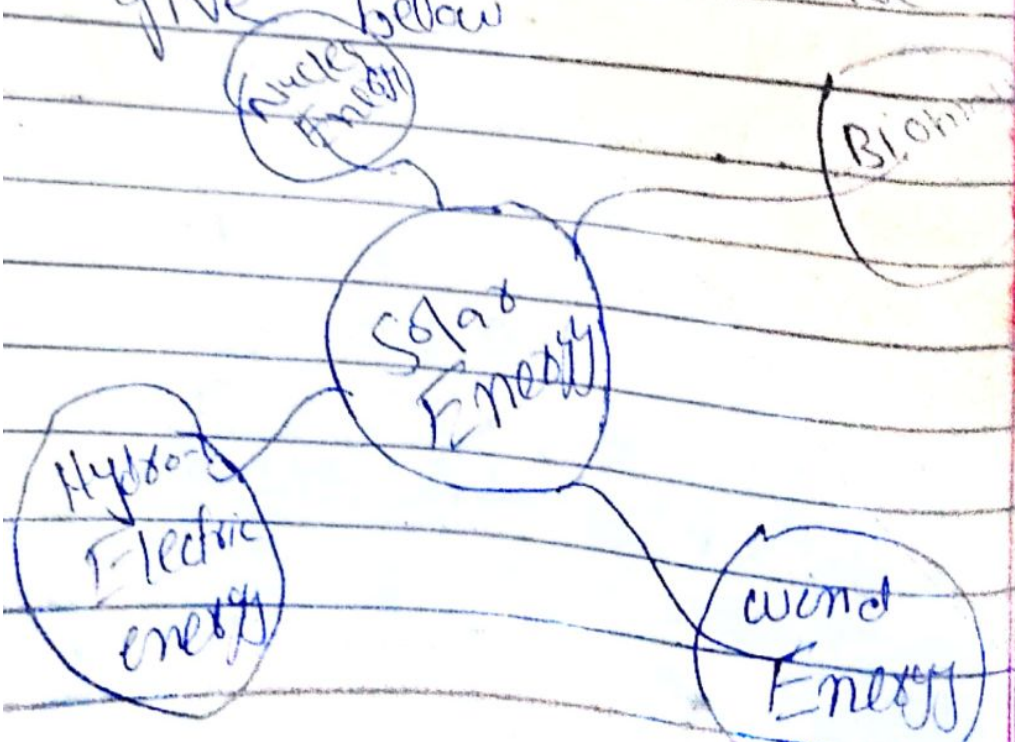 give bellow
Nucles
Energy
Solar
Energy
Hydro-
Electric
energy
wind
Energy